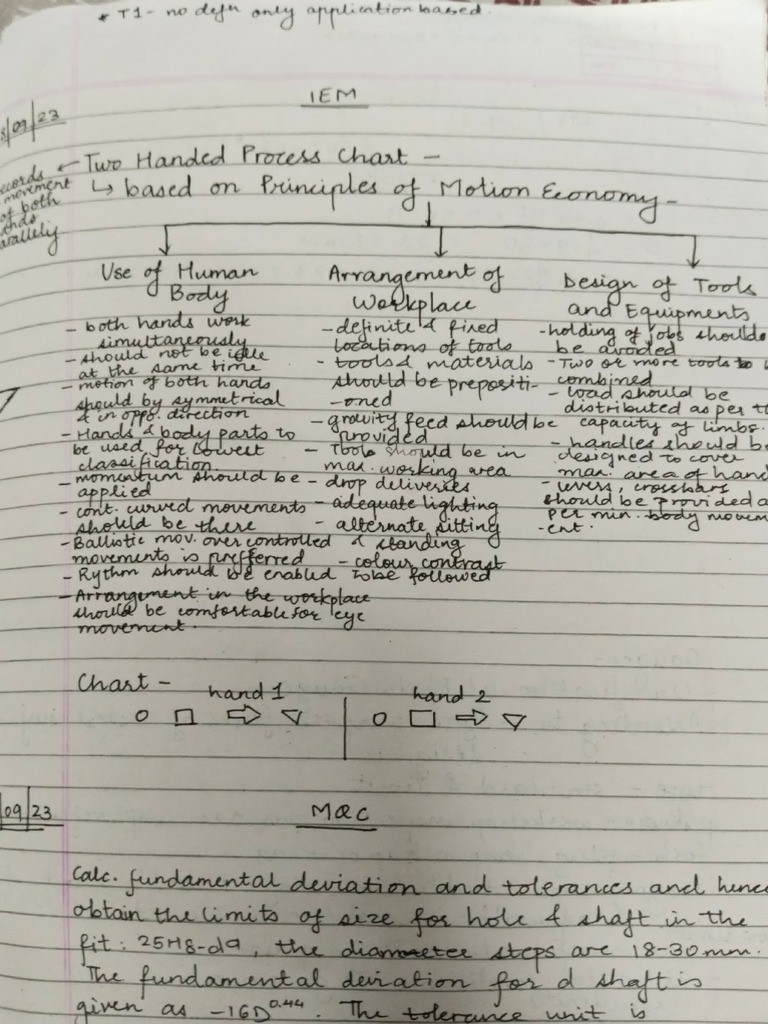 * T1- no defn only application based.
IEM
8/09/23
Two Handed Process Chart -
movement
of both
↳ based on Principles of Motion Economy -
Use of Human
Body
- both hands work
simultaneously
- should not be idle
at the same time
- motion of both hands
should by symmetrical
& in oppo. direction
- Hands & body parts to
be used for lowest
classification.
- momentum should be
applied
- cont. curved movements
should be there
- Ballistic mov. over controlled
movements is preffered
- Rythm should be enabled to be followed
- Arrangement in the workplace
should be comfortable for eye
movement.
Arrangement of
Workplace
- definite & fixed
locations of tools
- tools & materials
should be prepositi-
-oned
- gravity feed should be
provided
- Tools should be in
max. working area
- drop deliveries
- adequate lighting
- alternate sitting
& standing
- colour contrast
Design of Tools
and Equipments
- holding of jobs should
be avoided
- Two or more tools to
combined
- Load should be
distributed as per
capacity of limbs.
- handles should be
designed to cover
max. area of hand
- levers, crossbars
should be provided
per min. body movem
-ent.
Chart -
hand 1 hand 2
○ □ ⇨ ▽ | ○ □ ⇨ ▽
09/23
MQC
Calc. fundamental deviation and tolerances and hence
obtain the limits of size for hole & shaft in the
fit: 25H8-d9, the diameter steps are 18-30mm.
The fundamental deviation for d shaft is
given as -16D^0.44. The tolerance unit is